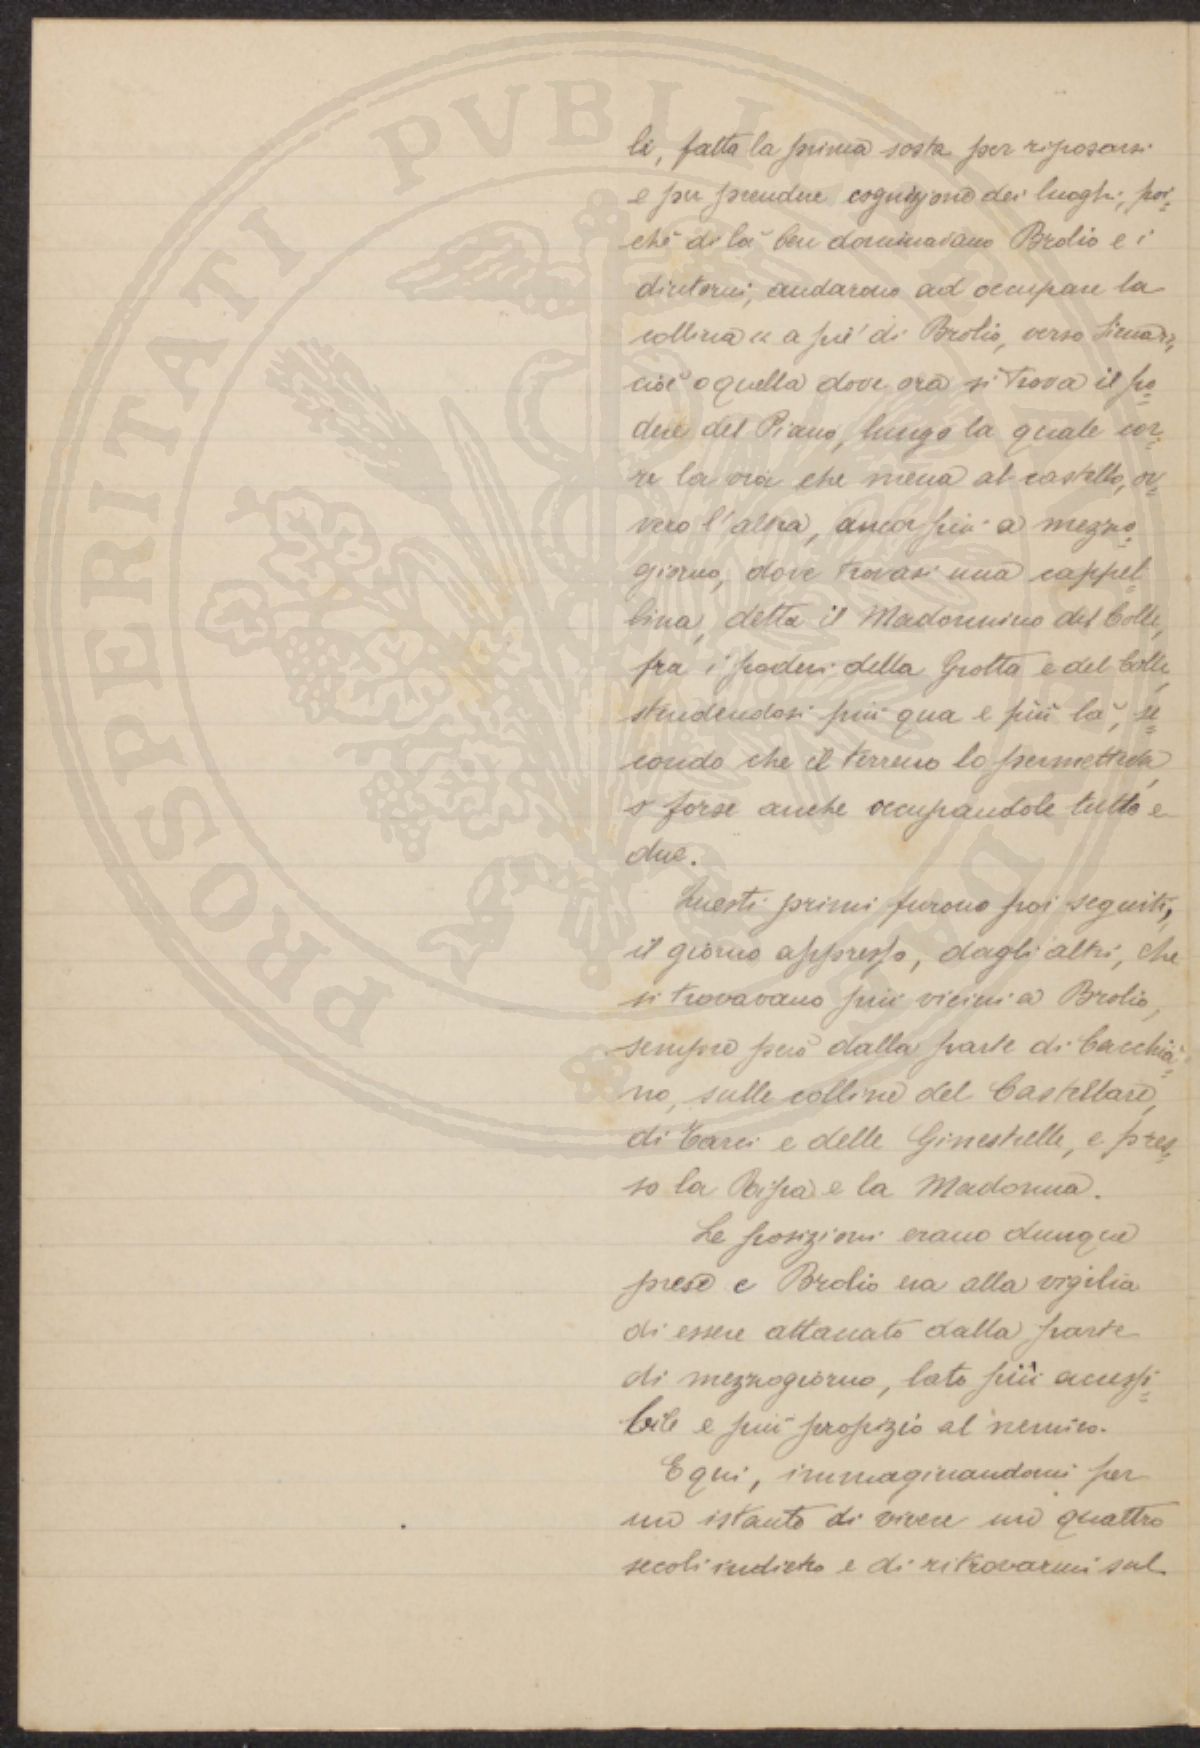 li, fatta la prima sosta per riposarsi
e per prendere cognizione dei luoghi, poi=
chè di là ben dominavano Brolio e i
dintorni, andarono ad occupare la
collina « a piè di Brolio, verso Siena »,
cioè o quella dove ora si trova il po=
dere del Piano, lungo la quale cor=
re la via che mena al castello, ov=
vero l'altra, ancor più a mezzo=
giorno, dove trovasi una cappel=
lina, detta il Madonnino del Colle,
fra i poderi della Grotta e del Colle,
stendendosi più qua e più là, se=
condo che il terreno lo permetteva,
o forse anche occupandole tutte e
due.
Questi primi furono poi seguiti,
il giorno appresso, dagli altri, che
si trovavano più vicini a Brolio,
sempre però dalla parte di Cacchia=
no, sulle colline del Castellare,
di Tarci e delle Ginestrelle, e pres=
so la Ripa e la Madonna.
Le posizioni erano dunque
prese e Brolio era alla vigilia
di essere attaccato dalla parte
di mezzogiorno, lato più accessi=
bile e più propizio al nemico.
E qui, immaginandomi per
un istante di vivere un quattro
secoli indietro e di ritrovarmi sul
PROSPERITATI PVBLICAE